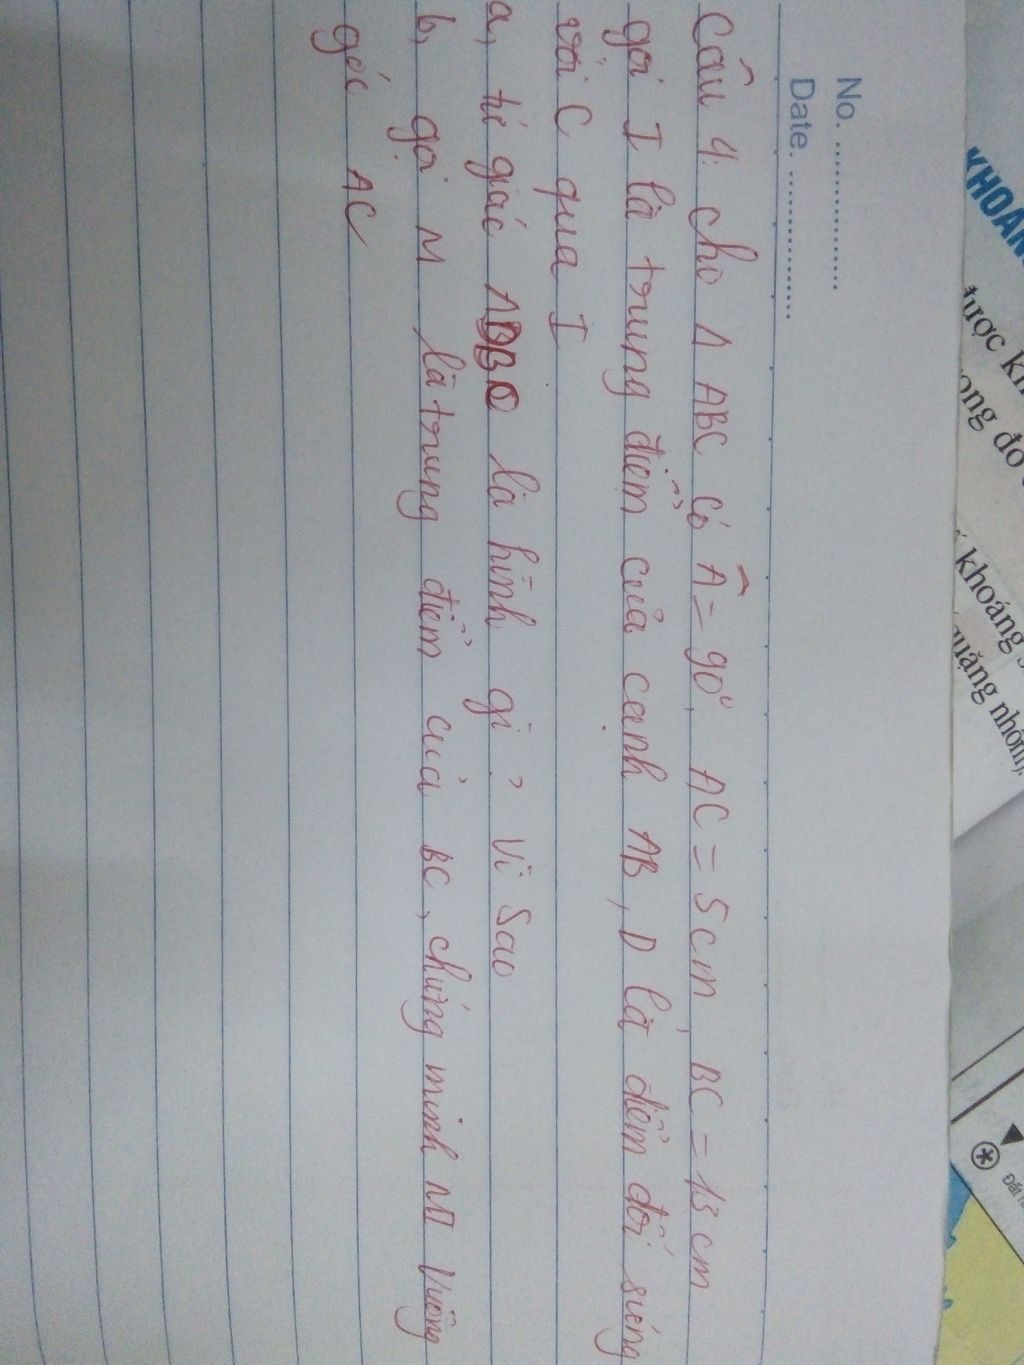 No. ....................
Date. ....................
Câu 4: cho Δ ABC có Â = 90°, AC = 5cm, BC = 13cm
gọi I là trung điểm của cạnh AB, D là điểm đối sứng
với C qua I
a, tứ giác ADBC là hình gì? Vì Sao
b, gọi M là trung điểm của BC, chứng minh MI Vuông
góc AC
KHOÁN
được kh
ong đó
khoáng s
quặng nhôm),